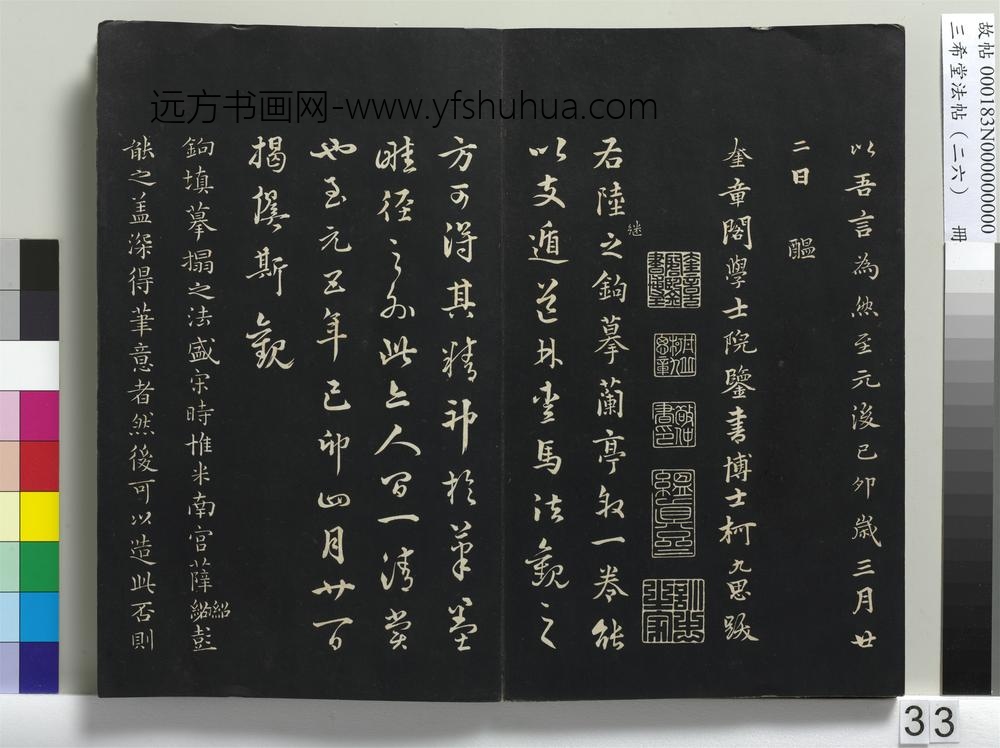 远方书画网-www.yfshuhua.com
故帖 000183N000000000
三希堂法帖(二六) 册
以吾言為然至元後己卯歲三月廿
二日 醞
奎章閣學士院鑒書博士柯九思跋
右陸之鉤摹蘭亭敘一卷能
继
以支遁道林愛馬法觀之
方可得其精神於筆墨
畦徑之外此亦人間一清賞
也至元五年己卯四月廿一日
揭傒斯觀
鉤填摹搨之法盛宋時惟米南宫薛紹彭
紹
能之盖深得筆意者然後可以造此否則
33